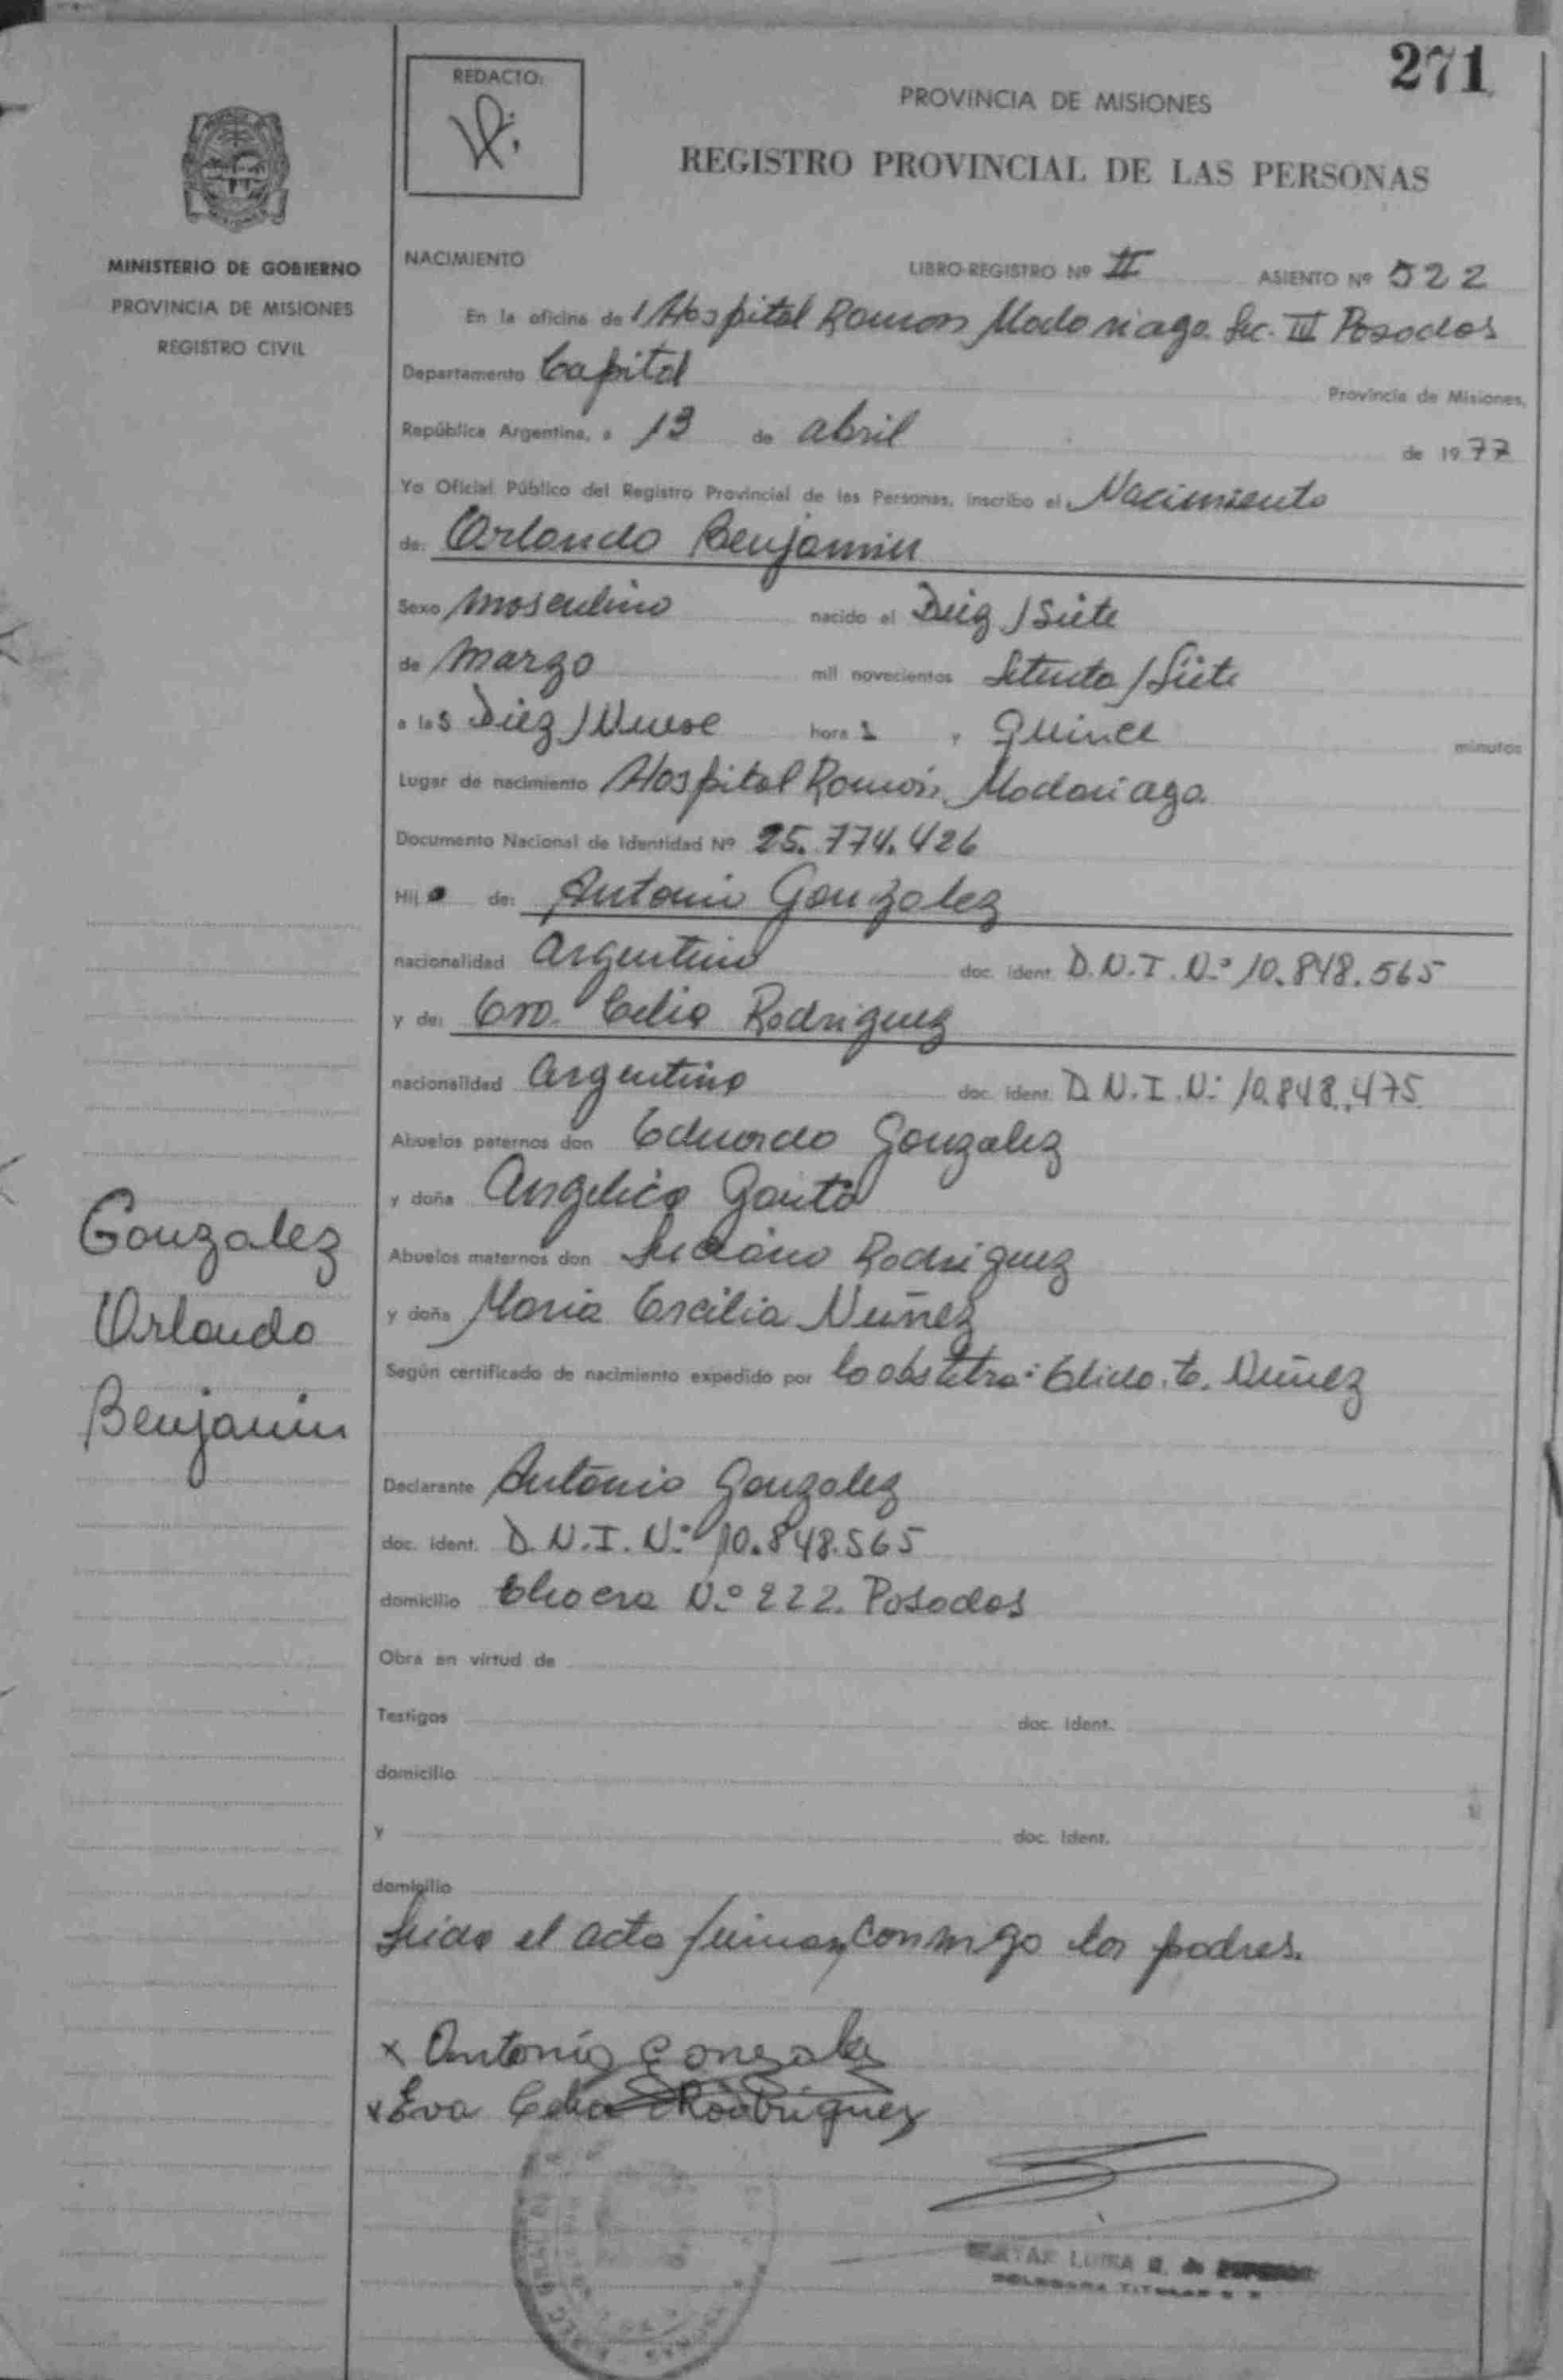 271
REDACTO:
PROVINCIA DE MISIONES
REGISTRO PROVINCIAL DE LAS PERSONAS
MINISTERIO DE GOBIERNO
PROVINCIA DE MISIONES
REGISTRO CIVIL
NACIMIENTO LIBRO-REGISTRO Nº II ASIENTO Nº 522
En la oficina del Hospital Ramon Madariaga. Sec. III Posadas
Departamento Capital Provincia de Misiones,
República Argentina, a 13 de abril de 1977
Yo Oficial Público del Registro Provincial de las Personas, inscribo el Nacimiento
de: Orlando Benjamin
Sexo masculino nacido el Diez/Siete
de marzo mil novecientos Setenta/Siete
a las Diez/Nueve horas y Quince minutos
Lugar de nacimiento Hospital Ramón Madariaga.
Documento Nacional de Identidad Nº 25.774.426
Hijo de: Antonio Gonzalez
nacionalidad argentino doc. ident. D.N.I. Nº 10.848.565
y de: Eva Celia Rodriguez
nacionalidad argentina doc. ident. D.N.I. Nº 10.848.475
Abuelos paternos don Eduardo Gonzalez
y doña Angelica
Abuelos maternos don Luciano Rodriguez
y doña Maria Ercilia Nuñez
Según certificado de nacimiento expedido por la obstetra: Elida. E. Nuñez
Gonzalez
Orlando
Benjamin
Declarante Antonio Gonzalez
doc. ident. D.N.I. Nº 10.848.565
domicilio Nº 222. Posadas
Obra en virtud de
Testigos doc. ident.
domicilio
y doc. ident.
domicilio
Leida el acta firman conmigo los padres.
x Antonio Gonzalez
x Eva Celia Rodriguez
LUISA